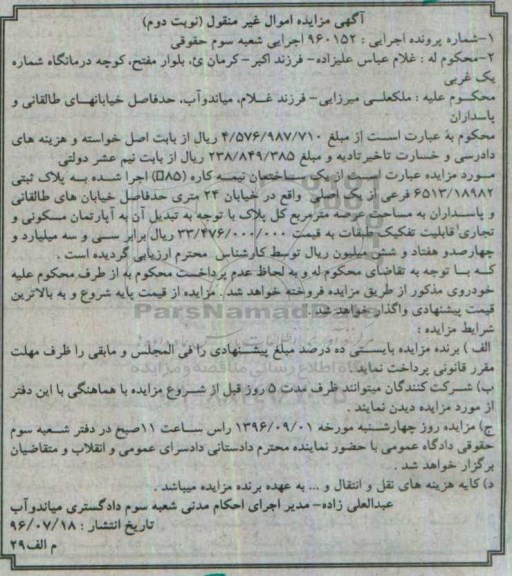 آگهی مزایده اموال غیر منقول (نوبت دوم)
۱-شماره پرونده اجرایی : ۹۶۰۱۵۲ اجرایی شعبه سوم حقوقی
۲-محکوم له : غلام عباس علیزاده- فرزند اکبر- کرمان ئ، بلوار مفتح، کوچه درمانگاه شماره
یک غربی
محکوم علیه : ملکعلی میرزایی- فرزند غلام، میاندوآب، حدفاصل خیابانهای طالقانی و
پاسداران
محکوم به عبارت است از مبلغ ۴/۵۷۶/۹۸۷/۷۱۰ ریال از بابت اصل خواسته و هزینه های
دادرسی و خسارت تاخیر تادیه و مبلغ ۲۳۸/۸۴۹/۳۸۵ ریال از بابت نیم عشر دولتی
مورد مزایده عبارت است از یک ساختمان نیمه کاره (۸۵٪) اجرا شده به پلاک ثبتی
۶۵۱۳/۱۸۹۸۲ فرعی از یک اصلی واقع در خیابان ۲۴ متری حدفاصل خیابان های طالقانی
و پاسداران به مساحت عرصه مترمربع کل پلاک با توجه به تبدیل آن به آپارتمان مسکونی و
تجاری قابلیت تفکیک طبقات به قیمت ۳۳/۴۷۶/۰۰۰/۰۰۰ ریال برابر سی و سه میلیارد و
چهارصدو هفتاد و شش میلیون ریال توسط کارشناس محترم ارزیابی گردیده است .
که با توجه به تقاضای محکوم له و به لحاظ عدم پرداخت محکوم به از طرف محکوم علیه
خودروی مذکور از طریق مزایده فروخته خواهد شد . مزایده از قیمت پایه شروع و به بالاترین
قیمت پیشنهادی واگذار خواهد شد .
شرایط مزایده :
الف ) برنده مزایده بایستی ده درصد مبلغ پیشنهادی را فی المجلس و مابقی را ظرف مهلت
مقرر قانونی پرداخت نماید
ب) شرکت کنندگان میتوانند ظرف مدت ۵ روز قبل از شروع مزایده با هماهنگی با این دفتر
از مورد مزایده دیدن نمایند .
ج) مزایده روز چهارشنبه مورخه ۱۳۹۶/۰۹/۰۱ راس ساعت ۱۱صبح در دفتر شعبه سوم
حقوقی دادگاه عمومی با حضور نماینده محترم دادستانی دادسرای عمومی و انقلاب و متقاضیان
برگزار خواهد شد .
د) کایه هزینه های نقل و انتقال و ... به عهده برنده مزایده میباشد .
عبدالعلی زاده- مدیر اجرای احکام مدنی شعبه سوم دادگستری میاندوآب
تاریخ انتشار : ۹۶/۰۷/۱۸
م الف۲۹
ParsNamadData